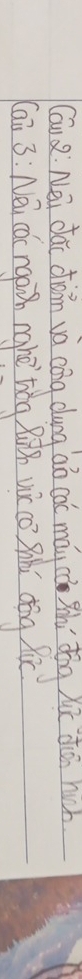 Câu 2: Nêu đặc điểm và công dụng của các máy cơ khí động lực điển hình.
Câu 3: Nêu các ngành nghề trong lĩnh vực cơ khí động lực.